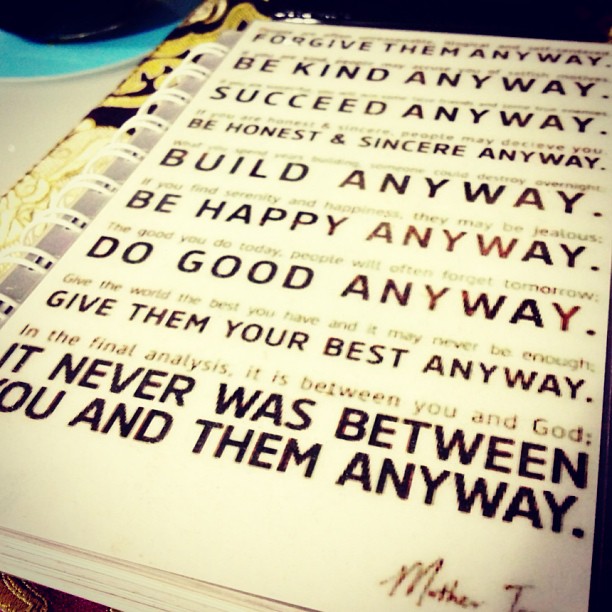 FORGIVE THEM ANYWAY.
BE KIND ANYWAY.
SUCCEED ANYWAY.
If you are honest & sincere, people may decieve you
BE HONEST & SINCERE ANYWAY.
What you spend years building, someone could destroy overnight
BUILD ANYWAY.
If you find serenity and happiness, they may be jealous;
BE HAPPY ANYWAY.
The good you do today, people will often forget tomorrow;
DO GOOD ANYWAY.
Give the world the best you have and it may never be enough;
GIVE THEM YOUR BEST ANYWAY.
In the final analysis, it is between you and God;
IT NEVER WAS BETWEEN
YOU AND THEM ANYWAY.
Mother T